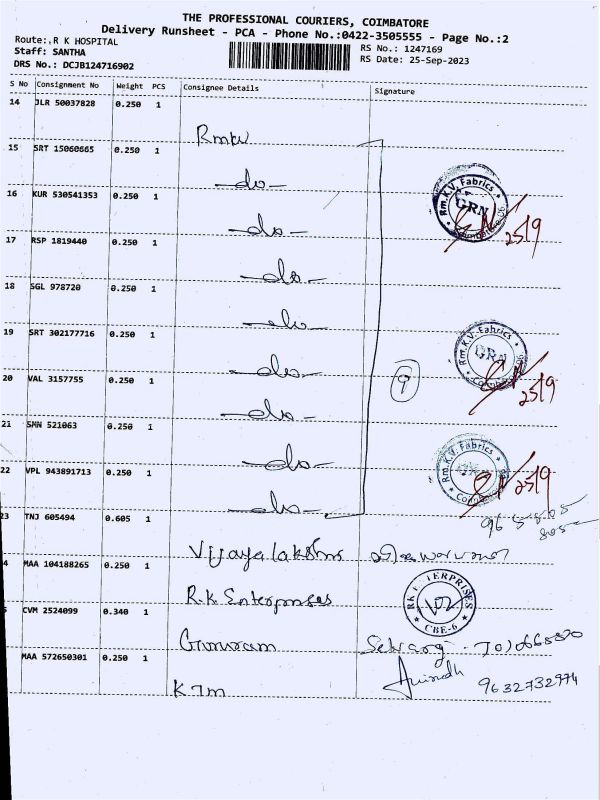 THE PROFESSIONAL COURIERS, COIMBATORE
Delivery Runsheet - PCA - Phone No.:0422-3505555 - Page No.:2
Route:.R K HOSPITAL
Staff: SANTHA
DRS No.: DCJB124716902
RS No.: 1247169
RS Date: 25-Sep-2023
S No Consignment No Weight PCS Consignee Details Signature
14 JLR 50037828 0.250 1
Rmkv
15 SRT 15060665 0.250 1
-do-
16 KUR 530541353 0.250 1
-do-
17 RSP 1819440 0.250 1
-do-
18 SGL 978720 0.250 1
-do-
19 SRT 302177716 0.250 1
-do-
20 VAL 3157755 0.250 1
-do-
21 SMN 521063 0.250 1
-do-
22 VPL 943891713 0.250 1
-do-
9
Rm.K.V. Fabrics
GRN
Coimbatore.06
25/9
Rm.K.V. Fabrics
GRN
25/9
Rm.K.V. Fabrics
25/9
23 TNJ 605494 0.605 1
Vijayalakshmi
4 MAA 104188265 0.250 1
R.K Enterprises
RK ENTERPRISES
CBE-6
CVM 2524099 0.340 1
MAA 572650301 0.250 1
KTM
9632732974